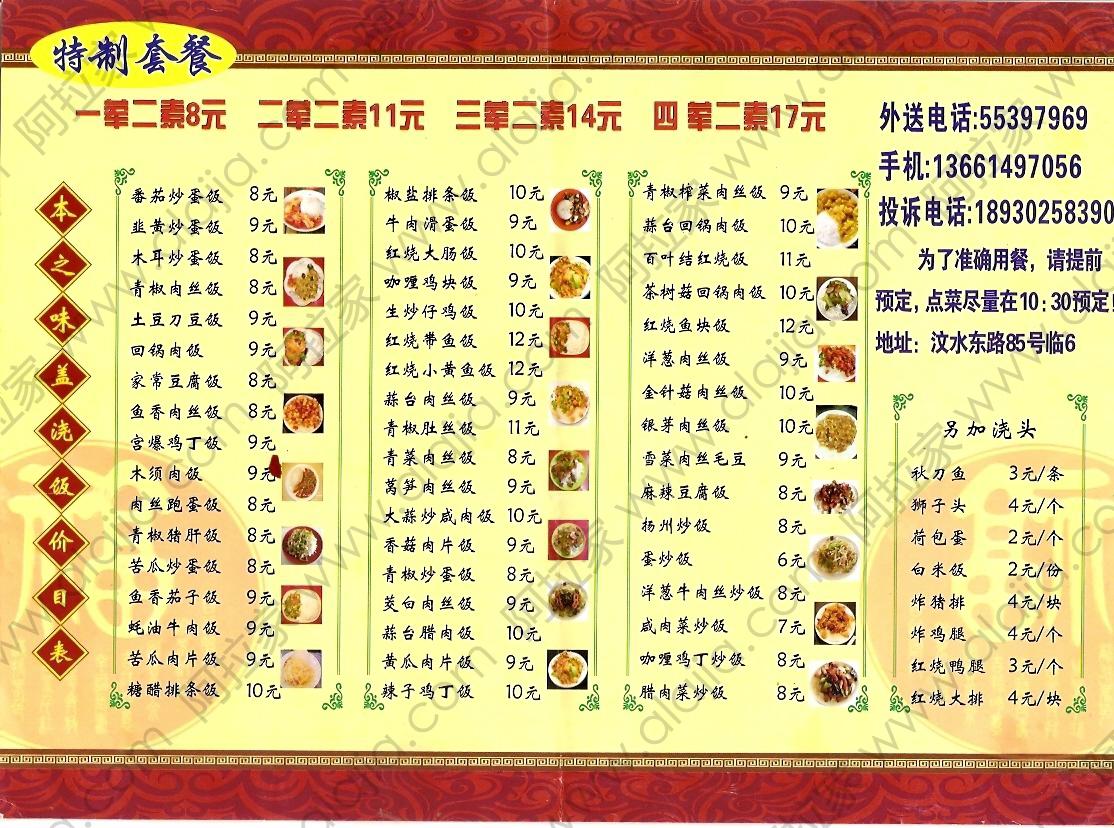 特制套餐
一荤二素8元 二荤二素11元 三荤二素14元 四荤二素17元
本之味盖浇饭价目表
番茄炒蛋饭 8元
韭黄炒蛋饭 9元
木耳炒蛋饭 8元
青椒肉丝饭 8元
土豆刀豆饭 9元
回锅肉饭 9元
家常豆腐饭 8元
鱼香肉丝饭 8元
宫爆鸡丁饭 9元
木须肉饭 9元
肉丝跑蛋饭 8元
青椒猪肝饭 8元
苦瓜炒蛋饭 8元
鱼香茄子饭 9元
蚝油牛肉饭 9元
苦瓜肉片饭 9元
糖醋排条饭 10元
椒盐排条饭 10元
牛肉滑蛋饭 9元
红烧大肠饭 10元
咖喱鸡块饭 9元
生炒仔鸡饭 10元
红烧带鱼饭 12元
红烧小黄鱼饭 12元
蒜台肉丝饭 9元
青椒肚丝饭 11元
青菜肉丝饭 8元
莴笋肉丝饭 9元
大蒜炒咸肉饭 10元
香菇肉片饭 9元
青椒炒蛋饭 8元
茭白肉丝饭 9元
蒜台腊肉饭 10元
黄瓜肉片饭 9元
辣子鸡丁饭 10元
青椒榨菜肉丝饭 9元
蒜台回锅肉饭 10元
百叶结红烧饭 11元
茶树菇回锅肉饭 10元
红烧鱼块饭 12元
洋葱肉丝饭 9元
金针菇肉丝饭 10元
银芽肉丝饭 10元
雪菜肉丝毛豆 9元
麻辣豆腐饭 8元
扬州炒饭 8元
蛋炒饭 6元
洋葱牛肉丝炒饭 8元
咸肉菜炒饭 7元
咖喱鸡丁炒饭 8元
腊肉菜炒饭 8元
外送电话:55397969
手机:13661497056
投诉电话:18930258390
为了准确用餐，请提前
预定,点菜尽量在10:30预定!
地址：汶水东路85号临6
另加浇头
秋刀鱼 3元/条
狮子头 4元/个
荷包蛋 2元/个
白米饭 2元/份
炸猪排 4元/块
炸鸡腿 4元/个
红烧鸭腿 3元/个
红烧大排 4元/块
阿拉家 www.alajia.com